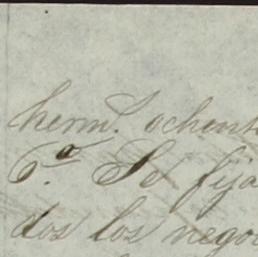 herm.s ochent
6.a Se fija
dos los nego